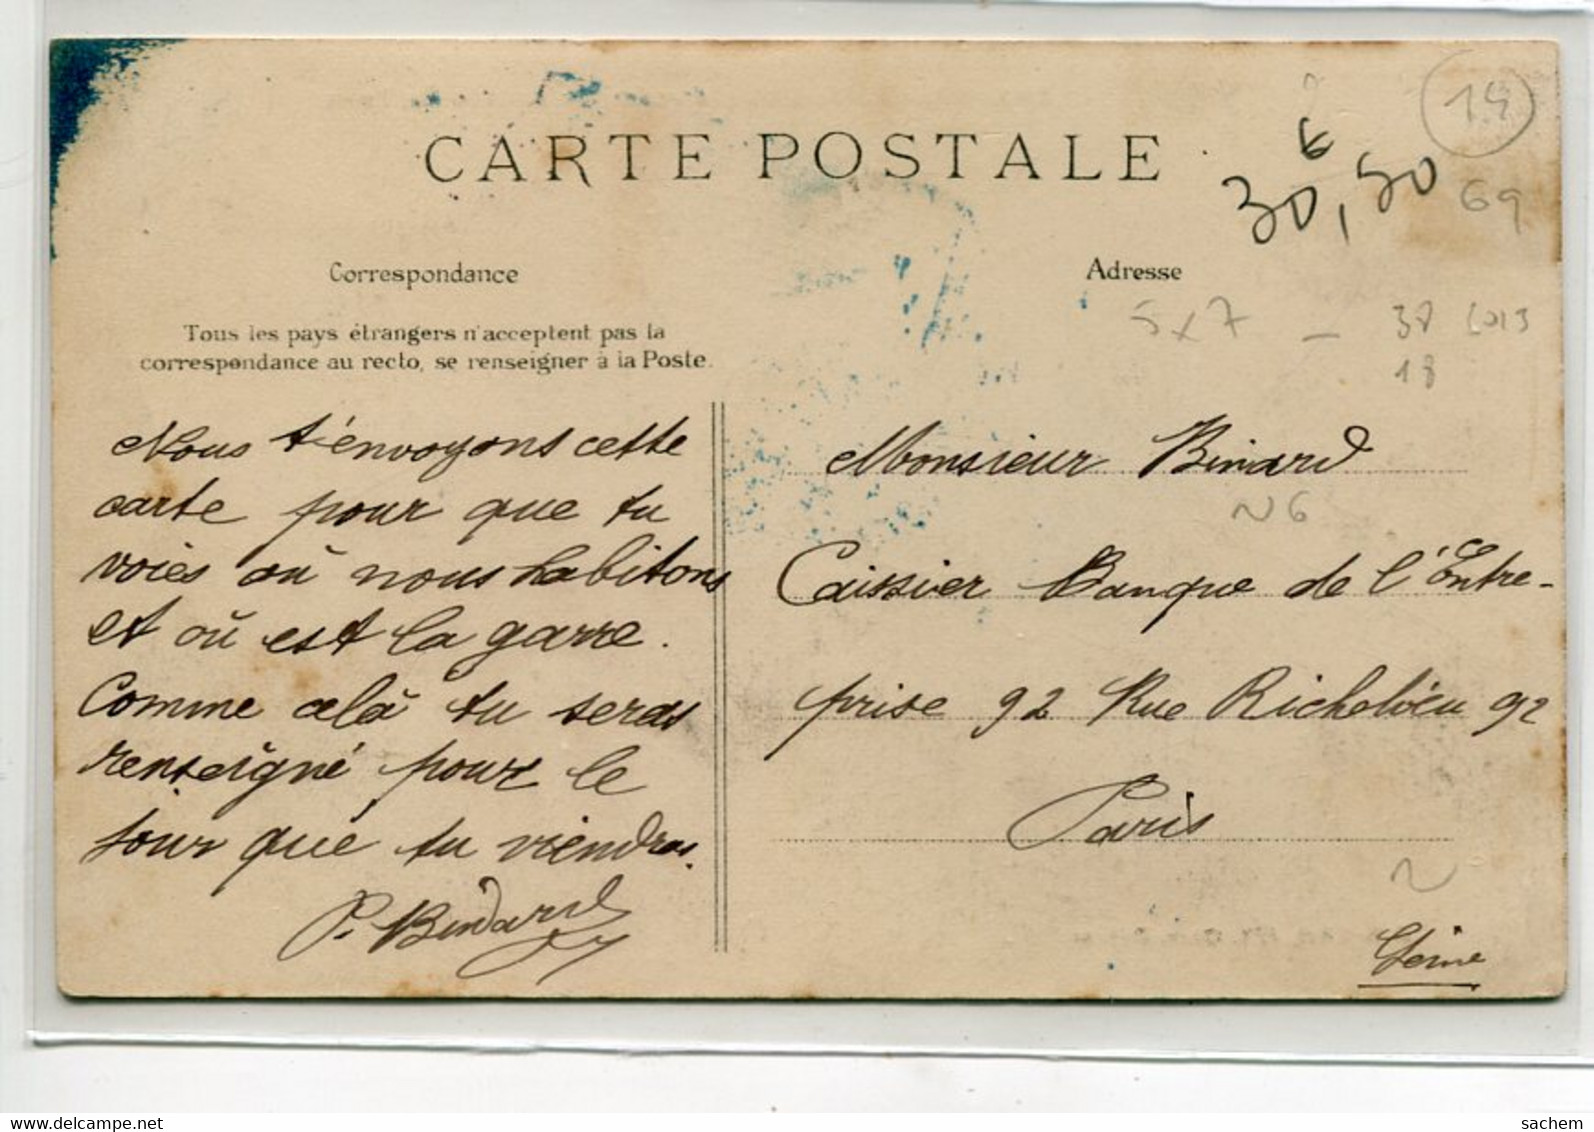 CARTE POSTALE
14
€
30,50
69
Correspondance
Tous les pays étrangers n'acceptent pas la
correspondance au recto, se renseigner à la Poste.
Nous t'envoyons cette
carte pour que tu
voies où nous habitons
et où est la garre.
Comme celà tu seras
renseigné pour le
jour que tu viendras.
P. Binard
Adresse
5x7 - 37
18
Monsieur Binard
N6
Caissier Banque de l'Entre-
prise 92 Rue Richelieu 92
Paris
Seine
Delcampe.net
sachem